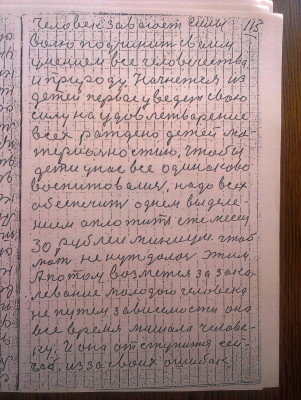 человек завоюет силы
волю подчинит своим
умением все человечества
и природу. Начнется из
детей первое уведет свою
силу на удовлетварение
всех раждено детей ма-
териальностию, чтобы
дети у нас все одинаково
воспитовались, надо всех
обеспечить одним выделе-
нием оплотить ежемесяч
30 рублей миниум. чтоб
мать не нуждалась этим.
А потом возмется за зака-
левание молодого человека
не путем зависимости она
все время мишала челове-
ку. И она отступится сей-
час, из за своих ошибак
113